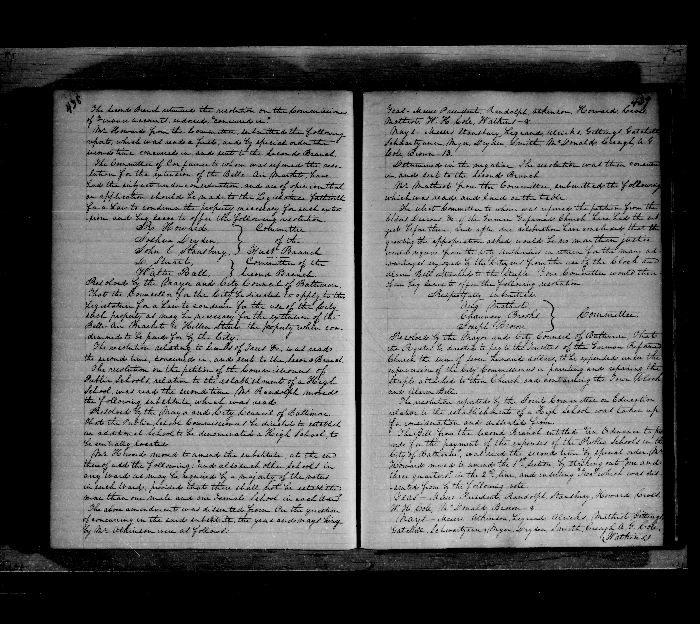 438
The Second Branch returned the resolution on the Commissioners
of Finance accounts, endorsed, "concurred in."
Mr Howard from the Committee, submitted the following
report, which was read a first, and by special order the
second time concurred in and sent to the Second Branch.
The Committee of Conference to whom was referred the reso-
lution for the extension of the Belle-Air Market, have
had the subject under consideration and are of opinion that
an application should be made to the Legislature
for a Law to condemn the property necessary for such exten-
sion and beg leave to offer the following resolution.
Howard Committee
Joshua Dryden of the
John E. Stansbury First Branch
Committee of the
Walter Ball Second Branch
Resolved by the Mayor and City Council of Baltimore,
That the Counsellor for the City be directed to apply to the
Legislature for a Law to condemn for the use of the City
such property as may be necessary for the extension of the
Belle-Air Market to Hillen Street the property when con-
demned to be paid for by the City.
The resolution relating to was read
the second time, concurred in, and sent to the Second Branch.
The resolution on the petition of the Commissioners of
Public Schools, relative to the establishment of a High
School, was read the second time. Mr Randolph moved
the following substitute which was read
Resolved by the Mayor and City Council of Baltimore
That the Public School Commissioners be directed to establish
an additional School to be denominated a High School, to
be centrally located
Mr Howard moved to amend the substitute at the end
thereof add the following; and also such other Schools in
any ward as may be required by a majority of the voters
in such ward, provided that there shall not be established
more than one male and one Female School in each Ward.
The above amendment was dissented from. On the question
of concurring in the said substitute, the yeas and nays being
by Mr Atkinson were as follows.
439
Yeas - Messrs President, Randolph, Atkinson, Howard, Cross,
Mathiot, W. H. Cole, Watkins - 8
Nays - Messrs Stansbury, Legrand, Ulrichs, Gittings, Gatchell,
Schwartzauer, Myer, Dryden, Smith, McDonald, Creagh, A. G.
Cole, Brown 13.
Determined in the negative. The resolution was then concurred
in and sent to the Second Branch.
Mr Mathiot from the Committee, submitted the following
which was read and laid on the table.
The Select Committee to whom was referred the petition from the
of the German Reformed Church have had the sub-
ject before them, and after due deliberation have concluded that the
granting the appropriation asked would be no more than justice
would require from the City Authorities in return for the many ad-
vantages enjoyed by the Citizens from the use of the Clock and
Alarm Bell attached to the Steeple. Your Committee would there-
fore beg leave to offer the following resolution
Respectfully submitted
Mathiot
Chauncey Brooks Committee
Joseph Brown
Resolved by the Mayor and City Council of Baltimore That
the Register be directed to pay to the Trustees of the German Reformed
Church the sum of seven hundred dollars, to be expended under the
supervision of the City Commissioners in painting and repairing the
Steeple attached to their Church and containing the Town Clock
and Alarm Bell.
The resolution reported by the Joint Committee on Education
relative to the establishment of a High School was taken up
for consideration and dissented from.
The Bill from the Second Branch entitled "An Ordinance to pro-
vide for the payment of the expenses of the Public Schools in the
City of Baltimore," was read the second time by special order. Mr
Howard moved to amend the 1st Section by striking out "one and
three quarters" in the 2nd line and inserting "Two" which was dis-
sented from by the following vote.
Yeas - Messrs President, Randolph, Stansbury, Howard, Cross,
W. H. Cole, McDonald, Brown - 8
Nays - Messrs Atkinson, Legrand, Ulrichs, Mathiot, Gittings,
Gatchell, Schwartzauer, Myer, Dryden, Smith, Creagh, A. G. Cole,
Watkins